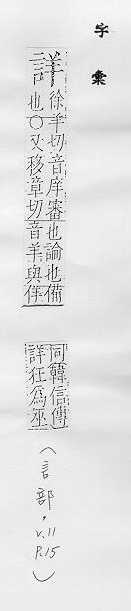 字彙
詳
徐羊切音庠審也論也備
也○又移章切音羊與佯
同韓信傳
詳狂為巫
(言部, v.11
P.15)